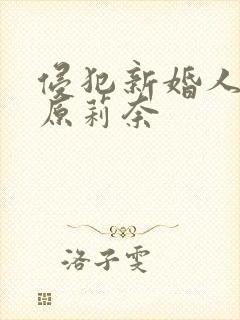 侵犯新婚人
原莉奈
洛子雯